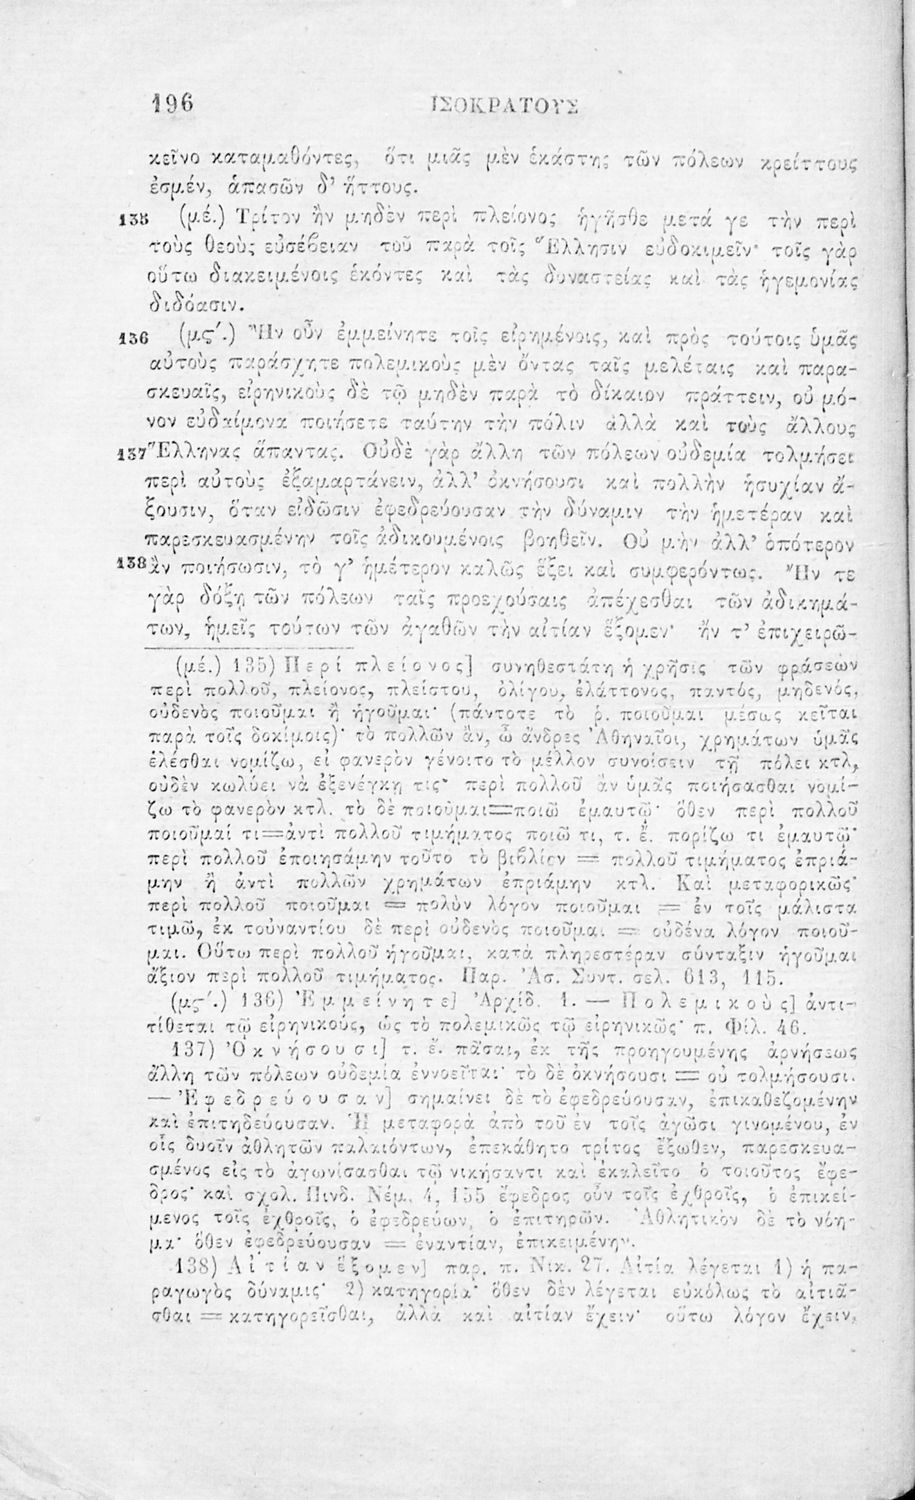 196 ΙΣΟΚΡΑΤΟΥΣ
κεῖνο καταμαθόντες, ὅτι μιᾶς μὲν ἑκάστης τῶν πόλεων κρείττους
ἐσμέν, ἁπασῶν δ’ ἥττους.
135 (μέ.) Τρίτον ἢν μηδὲν περὶ πλείονος ἡγῆσθε μετά γε τὴν περὶ
τοὺς θεοὺς εὐσέβειαν τοῦ παρὰ τοῖς Ἕλλησιν εὐδοκιμεῖν· τοῖς γὰρ
οὕτω διακειμένοις ἑκόντες καὶ τὰς δυναστείας καὶ τὰς ἡγεμονίας
διδόασιν.
136 (μς΄.) Ἢν οὖν ἐμμείνητε τοῖς εἰρημένοις, καὶ πρὸς τούτοις ὑμᾶς
αὐτοὺς παράσχητε πολεμικοὺς μὲν ὄντας ταῖς μελέταις καὶ παρα-
σκευαῖς, εἰρηνικοὺς δὲ τῷ μηδὲν παρὰ τὸ δίκαιον πράττειν, οὐ μό-
νον εὐδαίμονα ποιήσετε ταύτην τὴν πόλιν ἀλλὰ καὶ τοὺς ἄλλους
137 Ἕλληνας ἅπαντας. Οὐδὲ γὰρ ἄλλη τῶν πόλεων οὐδεμία τολμήσει
περὶ αὐτοὺς ἐξαμαρτάνειν, ἀλλ’ ὀκνήσουσι καὶ πολλὴν ἡσυχίαν ἄ-
ξουσιν, ὅταν εἰδῶσιν ἐφεδρεύουσαν τὴν δύναμιν τὴν ἡμετέραν καὶ
παρεσκευασμένην τοῖς ἀδικουμένοις βοηθεῖν. Οὐ μὴν ἀλλ’ ὁπότερον
138 ἂν ποιήσωσιν, τὸ γ’ ἡμέτερον καλῶς ἕξει καὶ συμφερόντως. Ἤν τε
γὰρ δόξῃ τῶν πόλεων ταῖς προεχούσαις ἀπέχεσθαι τῶν ἀδικημά-
των, ἡμεῖς τούτων τῶν ἀγαθῶν τὴν αἰτίαν ἕξομεν· ἤν τ’ ἐπιχειρῶ-
(μέ.) 135) Περί πλείονος] συνηθεστάτη ἡ χρῆσις τῶν φράσεων
περὶ πολλοῦ, πλείονος, πλείστου, ὀλίγου, ἐλάττονος, παντός, μηδενός,
οὐδενὸς ποιοῦμαι ἢ ἡγοῦμαι· (πάντοτε τὸ ῥ. ποιοῦμαι μέσως κεῖται
παρὰ τοῖς δοκίμοις)· τὸ πολλῶν ἄν, ὦ ἄνδρες Ἀθηναῖοι, χρημάτων ὑμᾶς
ἑλέσθαι νομίζω, εἰ φανερὸν γένοιτο τὸ μέλλον συνοίσειν τῇ πόλει κτλ,
οὐδὲν κωλύει νὰ ἐξενέγκῃ τις· περὶ πολλοῦ ἂν ὑμᾶς ποιήσασθαι νομί-
ζω τὸ φανερὸν κτλ. τὸ δὲ ποιοῦμαι=ποιῶ ἐμαυτῷ· ὅθεν περὶ πολλοῦ
ποιοῦμαί τι=ἀντὶ πολλοῦ τιμήματος ποιῶ τι, τ. ἔ. πορίζω τι ἐμαυτῷ·
περὶ πολλοῦ ἐποιησάμην τοῦτο τὸ βιβλίον = πολλοῦ τιμήματος ἐπριά-
μην ἢ ἀντὶ πολλῶν χρημάτων ἐπριάμην κτλ. Καὶ μεταφορικῶς·
περὶ πολλοῦ ποιοῦμαι = πολὺν λόγον ποιοῦμαι = ἐν τοῖς μάλιστα
τιμῶ, ἐκ τοὐναντίου δὲ περὶ οὐδενὸς ποιοῦμαι = οὐδένα λόγον ποιοῦ-
μαι. Οὕτω περὶ πολλοῦ ἡγοῦμαι, κατὰ πληρεστέραν σύνταξιν ἡγοῦμαι
ἄξιον περὶ πολλοῦ τιμήματος. Παρ. Ἀσ. Συντ. σελ. 613, 115.
(μς΄.) 136) Ἐμμείνητε] Ἀρχίδ. 1. — Πολεμικοὺς] ἀντι-
τίθεται τῷ εἰρηνικούς, ὡς τὸ πολεμικῶς τῷ εἰρηνικῶς· π. Φίλ. 46.
137) Ὀκνήσουσι] τ. ἔ. πᾶσαι, ἐκ τῆς προηγουμένης ἀρνήσεως
ἄλλη τῶν πόλεων οὐδεμία ἐννοεῖται· τὸ δὲ ὀκνήσουσι = οὐ τολμήσουσι.
— Ἐφεδρεύουσαν] σημαίνει δὲ τὸ ἐφεδρεύουσαν, ἐπικαθεζομένην
καὶ ἐπιτηδεύουσαν. Ἡ μεταφορὰ ἀπὸ τοῦ ἐν τοῖς ἀγῶσι γινομένου, ἐν
οἷς δυοῖν ἀθλητῶν παλαιόντων, ἐπεκάθητο τρίτος ἔξωθεν, παρεσκευα-
σμένος εἰς τὸ ἀγωνίσασθαι τῷ νικήσαντι καὶ ἐκαλεῖτο ὁ τοιοῦτος ἔφε-
δρος· καὶ σχολ. Πινδ. Νέμ. 4, 155 ἔφεδρος οὖν τοῖς ἐχθροῖς, ὁ ἐπικεί-
μενος τοῖς ἐχθροῖς, ὁ ἐφεδρεύων, ὁ ἐπιτηρῶν. Ἀθλητικὸν δὲ τὸ νόη-
μα· ὅθεν ἐφεδρεύουσαν = ἐναντίαν, ἐπικειμένην.
138) Αἰτίαν ἕξομεν] παρ. π. Νικ. 27. Αἰτία λέγεται 1) ἡ πα-
ραγωγὸς δύναμις· 2) κατηγορία· ὅθεν δὲν λέγεται εὐκόλως τὸ αἰτιᾶ-
σθαι = κατηγορεῖσθαι, ἀλλὰ καὶ αἰτίαν ἔχειν· οὕτω λόγον ἔχειν,